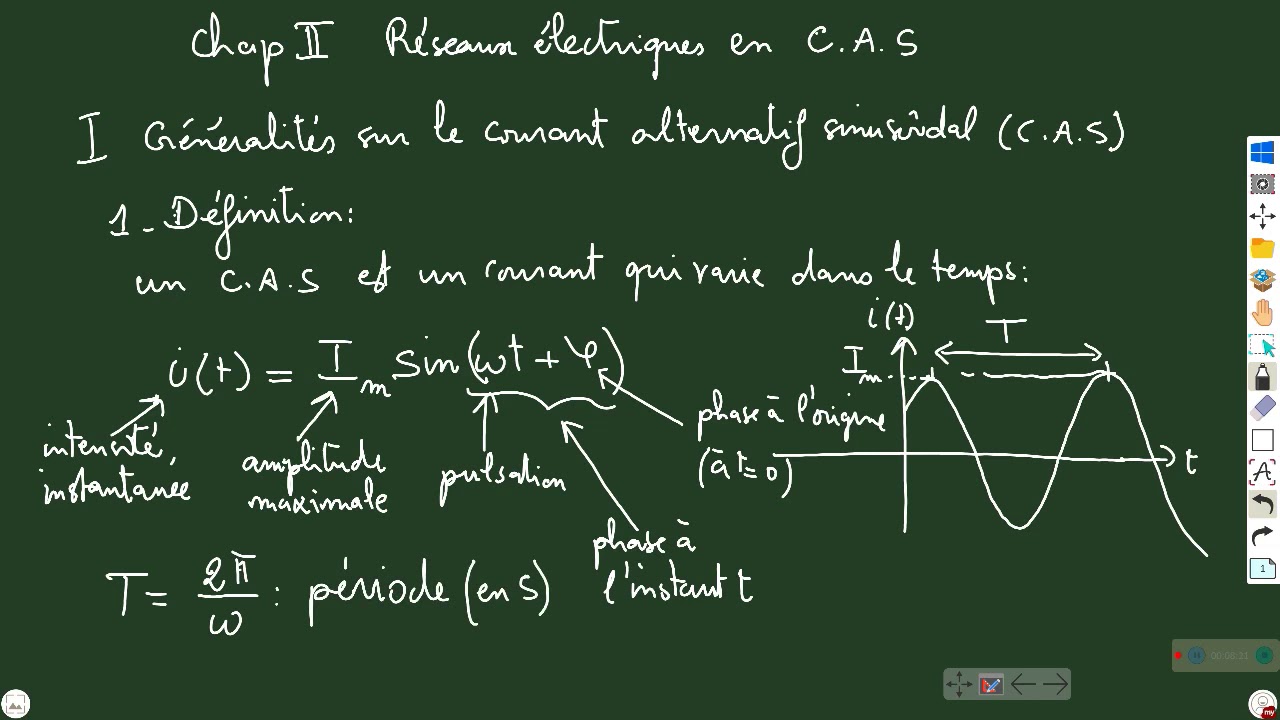 Chap II Réseaux électriques en C.A.S
I Généralités sur le courant alternatif sinusoïdal (C.A.S)
1 - Définition:
un C.A.S est un courant qui varie dans le temps:
i(t) = I_m sin(ωt + φ)
intensité
instantanée
amplitude
maximale
pulsation
phase à l'origine
(à t=0)
phase à
l'instant t
T = 2π/ω : période (en s)
i(t)
I_m
T
t
A
1
00:08:31
my